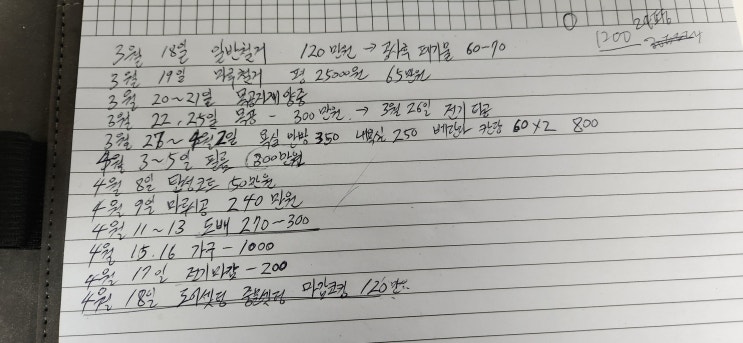 1200
3월 18일 일반철거 120만원 → 공사후 폐기물 60-70
3월 19일 마루철거 평 25000원 65만원
3월 20~21일 목공자재 양중
3월 22, 25일 목공 - 300만원 → 3월 26일 전기 타공
3월 27~4월 2일 욕실 안방 350 내욕실 250 베란다 칸당 60×2 800
4월 3~5일 필름 300만원
4월 8일 탄성코트 50만원
4월 9일 마루시공 240만원
4월 11~13 도배 270-300
4월 15.16 가구-1000
4월 17일 전기마감-200
4월 18일 도어셋팅 중문셋팅 마감코킹 120만